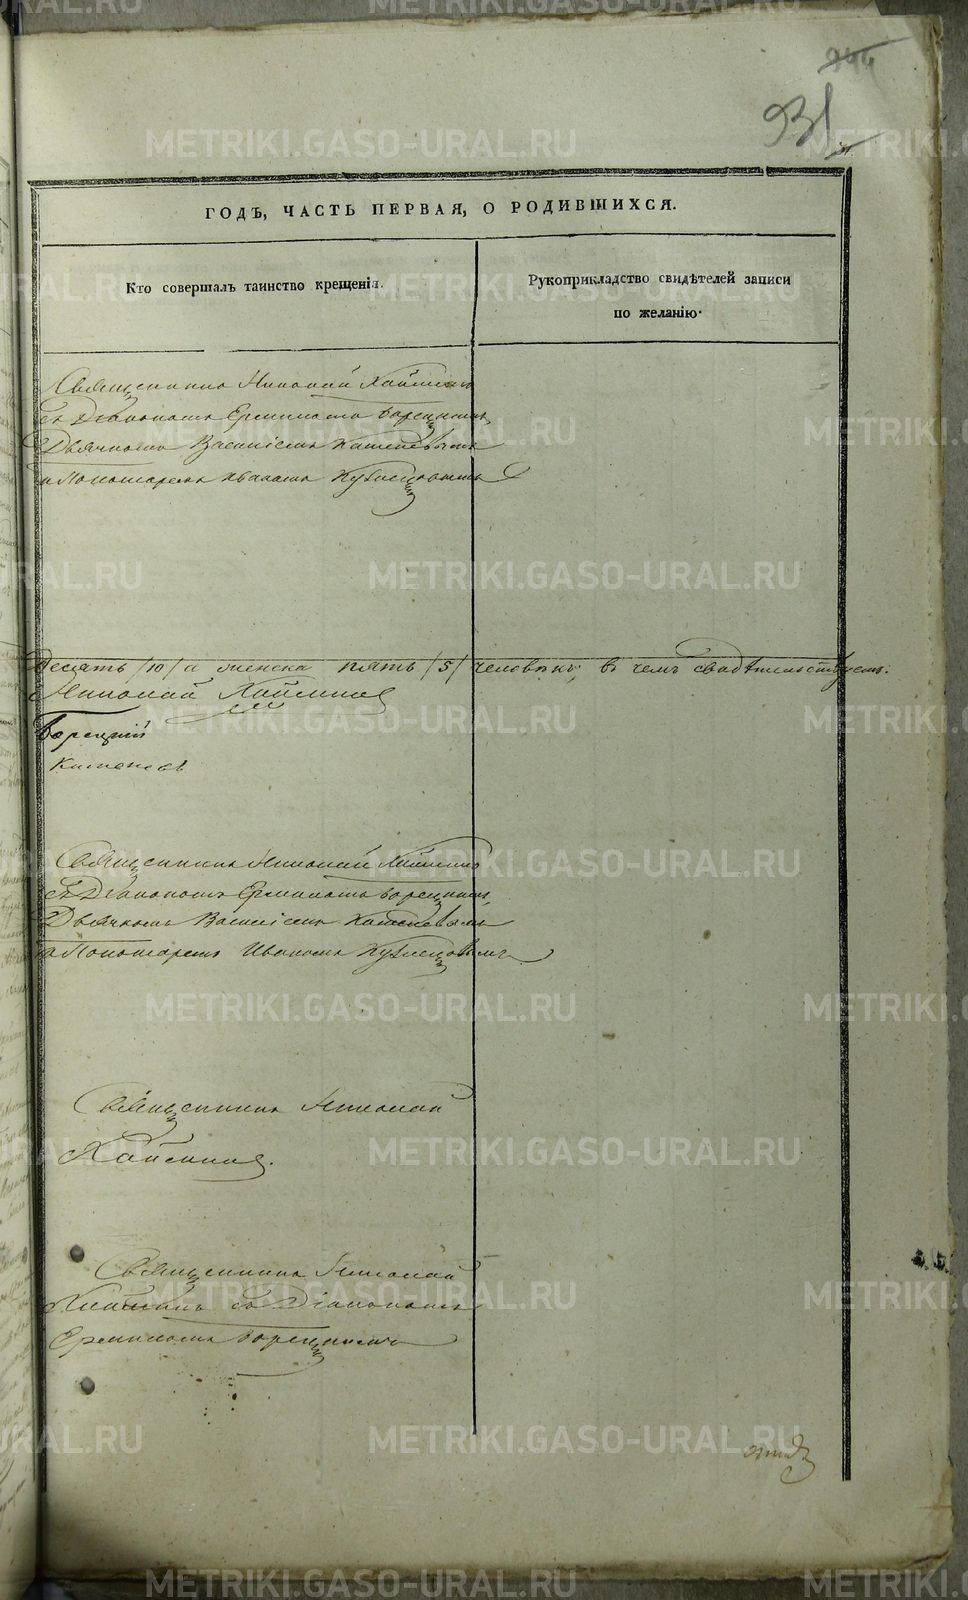 931
ГОДЪ, ЧАСТЬ ПЕРВАЯ, О РОДИВШИХСЯ.
Кто совершалъ таинство крещенія.
Рукоприкладство свидѣтелей записи
по желанію.
Священникъ Николай
съ Діакономъ Ермиломъ Борецкимъ,
Дьячкомъ Василіемъ
и Пономаремъ Иваномъ Кузнецовымъ
Десять /10/ а женска пять /5/ человѣкъ; въ чемъ свидѣтельствуемъ:
Николай
Борецкій
Священникъ Николай
съ Діакономъ Ермиломъ Борецкимъ,
Дьячкомъ Василіемъ
и Пономаремъ Иваномъ Кузнецовымъ
Священникъ Николай
Священникъ Николай
съ Діакономъ
Ермиломъ Борецкимъ
METRIKI.GASO-URAL.RU